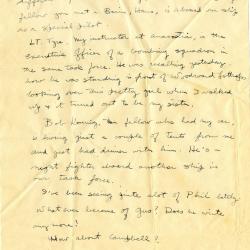 fellow you met - Bain, Hans, is aboard on ship
as a special pilot.
LT. Tye my instructor at Anacostia, is the
executive officer of a bombing squadron in
the same task force. He was recalling yesterday
how he was standing in front of Woodward & Lothrop
looking over this pretty girl when I walked
up & it turned out to be my sister.
Bob, the fellow who had my car,
is living just a couple of tents from me
and just had dinner with him. He's a
night fighter aboard another ship in
our task force.
I've been seeing quite alot of Phil lately.
Whatever became of Gus? Does he write
any more?
How about Campbell?